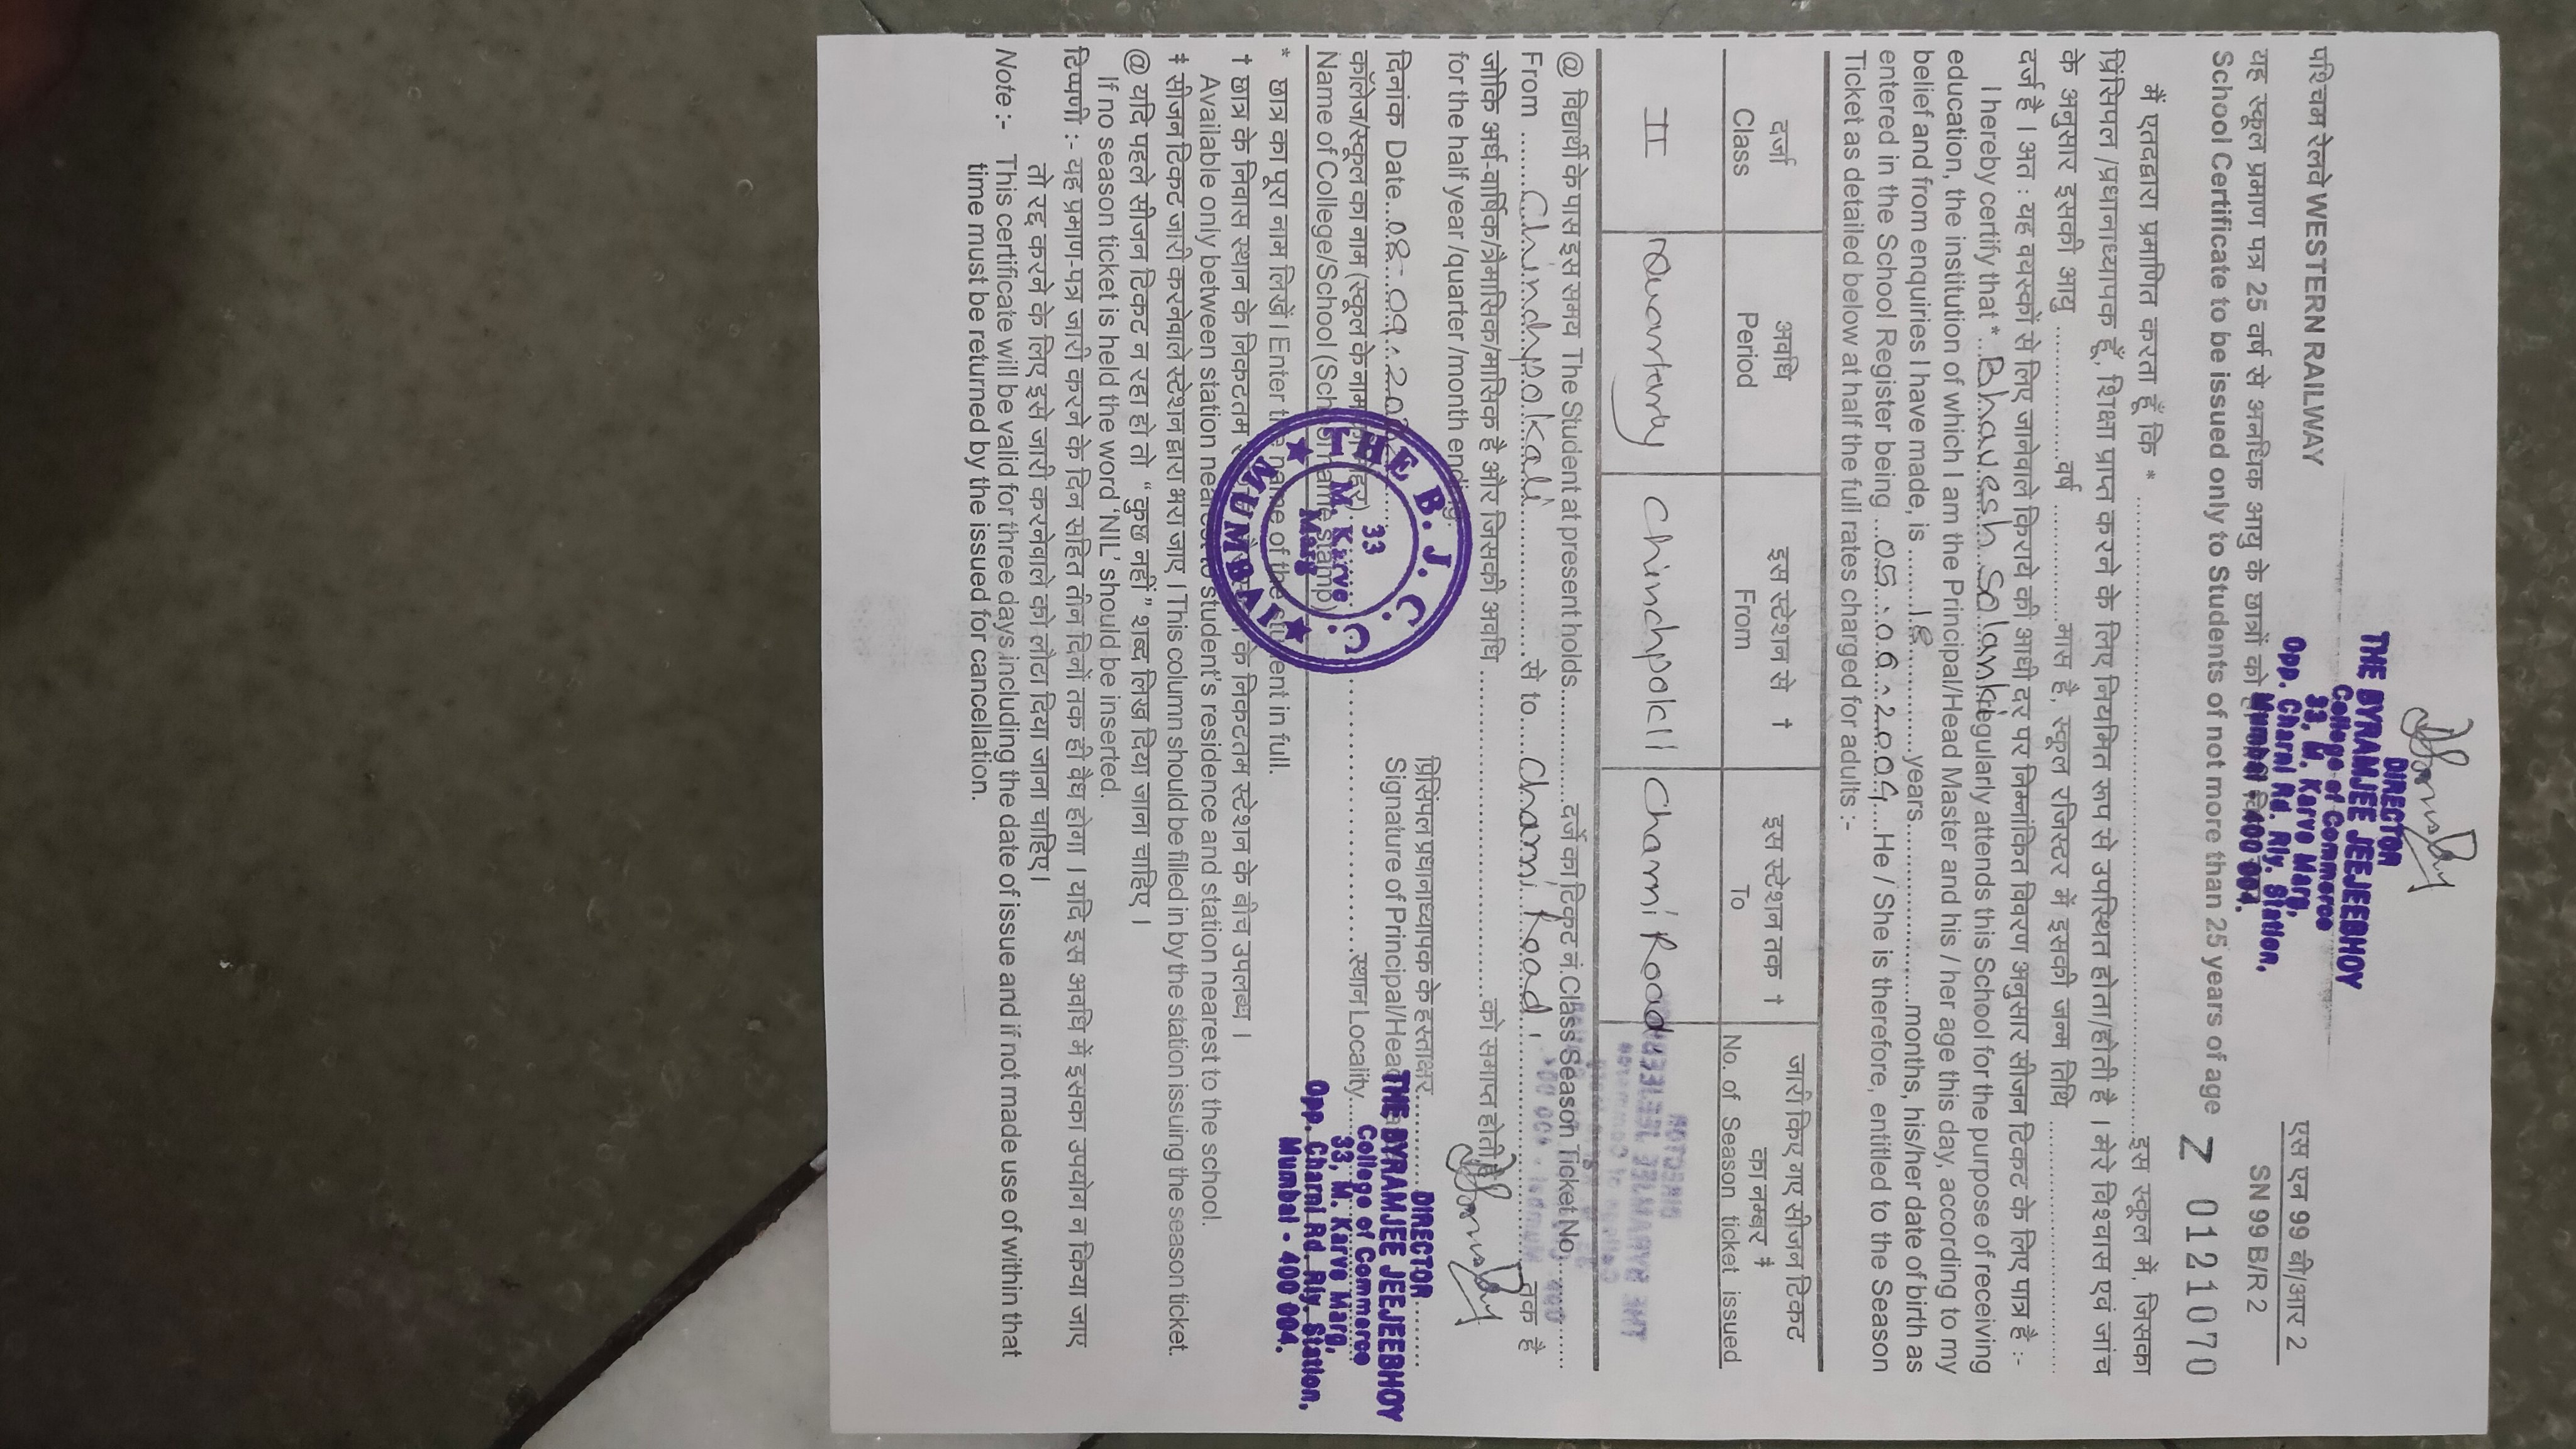 DIRECTOR
THE BYRAMJEE JEEJEEBHOY
College of Commerce
33, M. Karve Marg,
Opp. Charni Rd. Rly. Station,
Mumbai - 400 004.
पश्चिम रेलवे WESTERN RAILWAY
एस एन 99 बी/आर 2
SN 99 B/R 2
यह स्कूल प्रमाण पत्र 25 वर्ष से अनधिक आयु के छात्रों को
School Certificate to be issued only to Students of not more than 25 years of age
Z 0121070
मैं एतदद्वारा प्रमाणित करता हूँ कि * ........ इस स्कूल में, जिसका
प्रिंसिपल /प्रधानाध्यापक हूँ, शिक्षा प्राप्त करने के लिए नियमित रूप से उपस्थित होता/होती है । मेरे विश्वास एवं जांच
के अनुसार इसकी आयु ........ वर्ष ........ मास है, स्कूल रजिस्टर में इसकी जन्म तिथि ........
दर्ज है । अत : यह वयस्कों से लिए जानेवाले किराये की आधी दर पर निम्नांकित विवरण अनुसार सीजन टिकट के लिए पात्र है :-
I hereby certify that * Bhavesh Solanki regularly attends this School for the purpose of receiving
education, the institution of which I am the Principal/Head Master and his / her age this day, according to my
belief and from enquiries I have made, is ........ 18 ........ years ........ months, his/her date of birth as
entered in the School Register being ... 05 . 06 . 2004 .... He / She is therefore, entitled to the Season
Ticket as detailed below at half the full rates charged for adults :-
दर्जा अवधि इस स्टेशन से † इस स्टेशन तक † जारी किए गए सीजन टिकट
का नम्बर ‡
Class Period From To No. of Season ticket issued
II Quartarly Chinchpokli Charni Road
@ विद्यार्थी के पास इस समय The Student at present holds........ दर्जे का टिकट नं. Class Season Ticket No.........
From ........ Chinchpokali ........ से to ..... Charni Road ........ तक है
जोकि अर्ध-वार्षिक/त्रैमासिक/मासिक है और जिसकी अवधि ........ को समाप्त होती है
for the half year /quarter /month ending.
प्रिसिंपल प्रधानाध्यापक के हस्ताक्षर............
दिनांक Date... 08-09-
Signature of Principal/Head
DIRECTOR
THE BYRAMJEE JEEJEEBHOY
College of Commerce
33, M. Karve Marg,
Opp. Charni Rd. Rly. Station,
Mumbai - 400 004.
कॉलेज/स्कूल का नाम (स्कूल के नाम की मोहर) ........ स्थान Locality....
Name of College/School (School name stamp)
THE B. J. C. C.
33
M. Karve
Marg
MUMBAI
* छात्र का पूरा नाम लिखें । Enter the name of the student in full.
† छात्र के निवास स्थान के निकटतम के निकटतम स्टेशन के बीच उपलब्ध ।
Available only between station nearest to student's residence and station nearest to the school.
‡ सीजन टिकट जारी करनेवाले स्टेशन द्वारा भरा जाए । This column should be filled in by the station issuing the season ticket.
@ यदि पहले सीजन टिकट न रहा हो तो “ कुछ नहीं ” शब्द लिख दिया जाना चाहिए ।
If no season ticket is held the word ‘NIL’ should be inserted.
टिप्पणी :- यह प्रमाण-पत्र जारी करने के दिन सहित तीन दिनों तक ही वैध होगा । यदि इस अवधि में इसका उपयोग न किया जाए
तो रद्द करने के लिए इसे जारी करनेवाले को लौटा दिया जाना चाहिए।
Note :- This certificate will be valid for three days including the date of issue and if not made use of within that
time must be returned by the issued for cancellation.